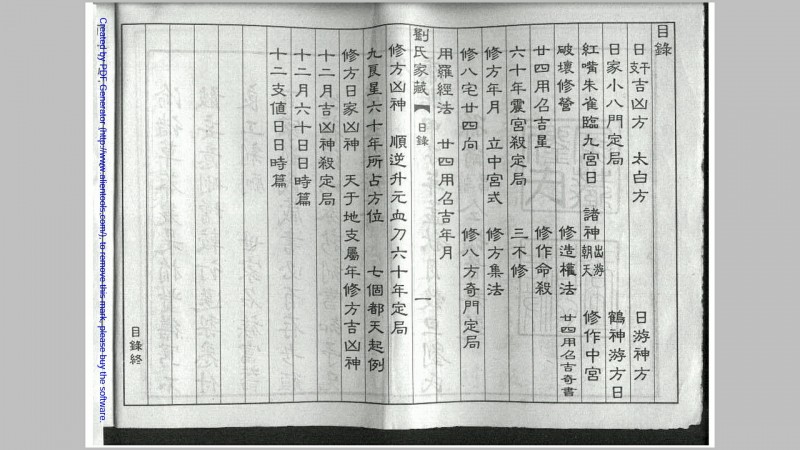 目錄
日奸吉凶方 太白方 日游神方
日家小八門定局 鶴神游方日
紅嘴朱雀臨九宮日 諸神出游朝天 修作中宮
破壞修營 修造權法 廿四用召吉奇書
廿四用召吉星 修作命殺
六十年震宮殺定局 三不修
修方年月 立中宮式 修方集法
修八宅廿四向 修八方奇門定局
用羅經法 廿四用召吉年月
劉氏家藏 目錄 一
修方凶神 順逆升元血刀六十年定局
九良星六十年所占方位 七個都天起例
修方日家凶神 天于地支屬年修方吉凶神
十二月吉凶神殺定局
十二月六十日日時篇
十二支值日日時篇
目錄終
Created by PDF Generator (http://www.alientools.com/), to remove this mark, please buy the software.